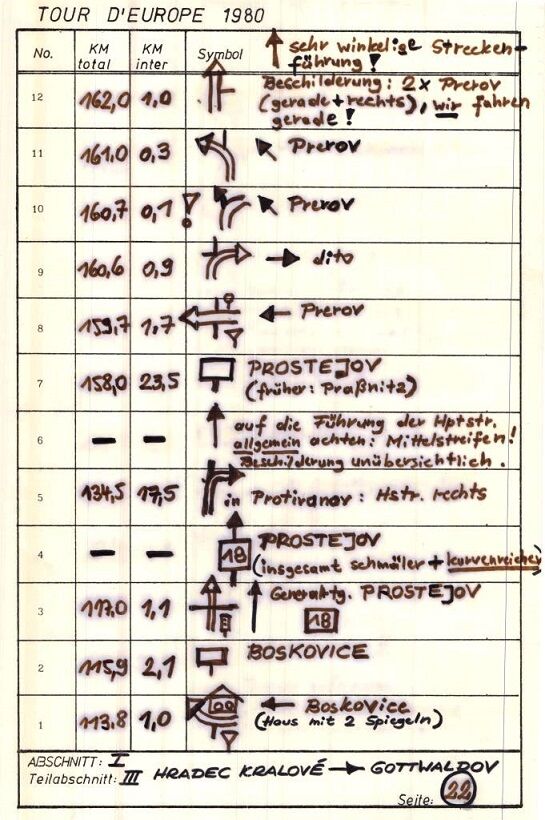 TOUR D'EUROPE 1980
No. KM total KM inter Symbol
sehr winkelige Strecken-
führung!
12 162,0 1,0 Beschilderung: 2x Prerov
(gerade + rechts), wir fahren
gerade!
11 161.0 0,3 Prerov
10 160,7 0,1 ! Prerov
9 160,6 0,9 dito
8 159,7 1,7 Prerov
7 158,0 23,5 PROSTEJOV
(früher: Praßnitz)
6 — — auf die Führung der Hptstr.
allgemein achten: Mittelstreifen!
Beschilderung unübersichtlich.
5 134,5 17,5 in Protivanov: Hstr. rechts
4 — — 18 PROSTEJOV
(insgesamt schmäler + kurvenreicher)
3 117,0 1,1 Generalrtg. PROSTEJOV
18
2 115,9 2,1 BOSKOVICE
1 113,8 1,0 Boskovice
(Haus mit 2 Spiegeln)
ABSCHNITT: I
Teilabschnitt: III HRADEC KRALOVÉ → GOTTWALDOV
Seite: 22